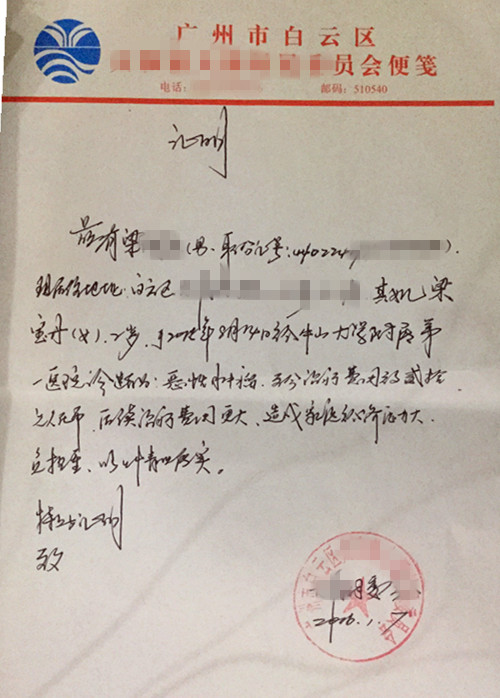 广州市白云区
员会便笺
电话: 邮码: 510540
证明
兹有梁 (男、身份证号: 440224
现居住地址: 白云区 其女儿梁
宝丹(女), 2岁, 于2015年8月 日经中山大学附属第
一医院诊断为: 恶性 瘤, 治疗费用
人民币, 后续治疗费用更大, 造成家庭经济压力大.
负担重, 以上情况属实。
特此证明
致
2016.1.7